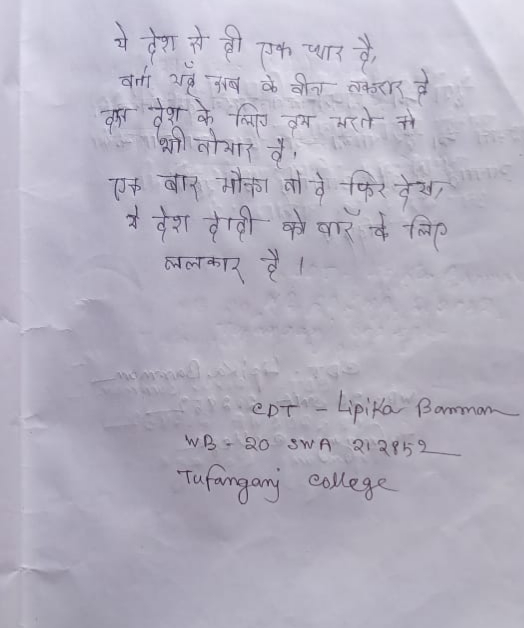 ये देश से ही एक प्यार है,
वर्ना यहाँ सब के बीच तकरार है
इस देश के लिए हम मरने को
भी तैयार है,
एक बार मौका तो दे फिर देख,
ये देश द्रोही को वारँ के लिए
ललकार है ।
CDT - Lipika Barman
WB - 20 SWA 212852
Tufanganj College